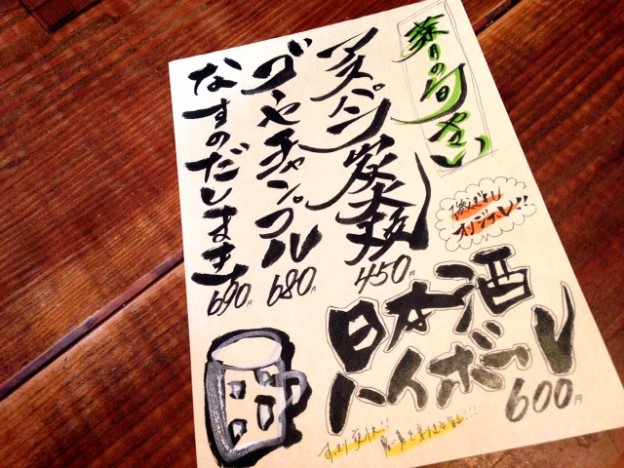 葉月の旬やさい
アスパラ炭火焼
450円
ゴーヤチャンプル
680円
なすのだしまき
690円
オリジナル!!
日本酒
ハイボール
600円